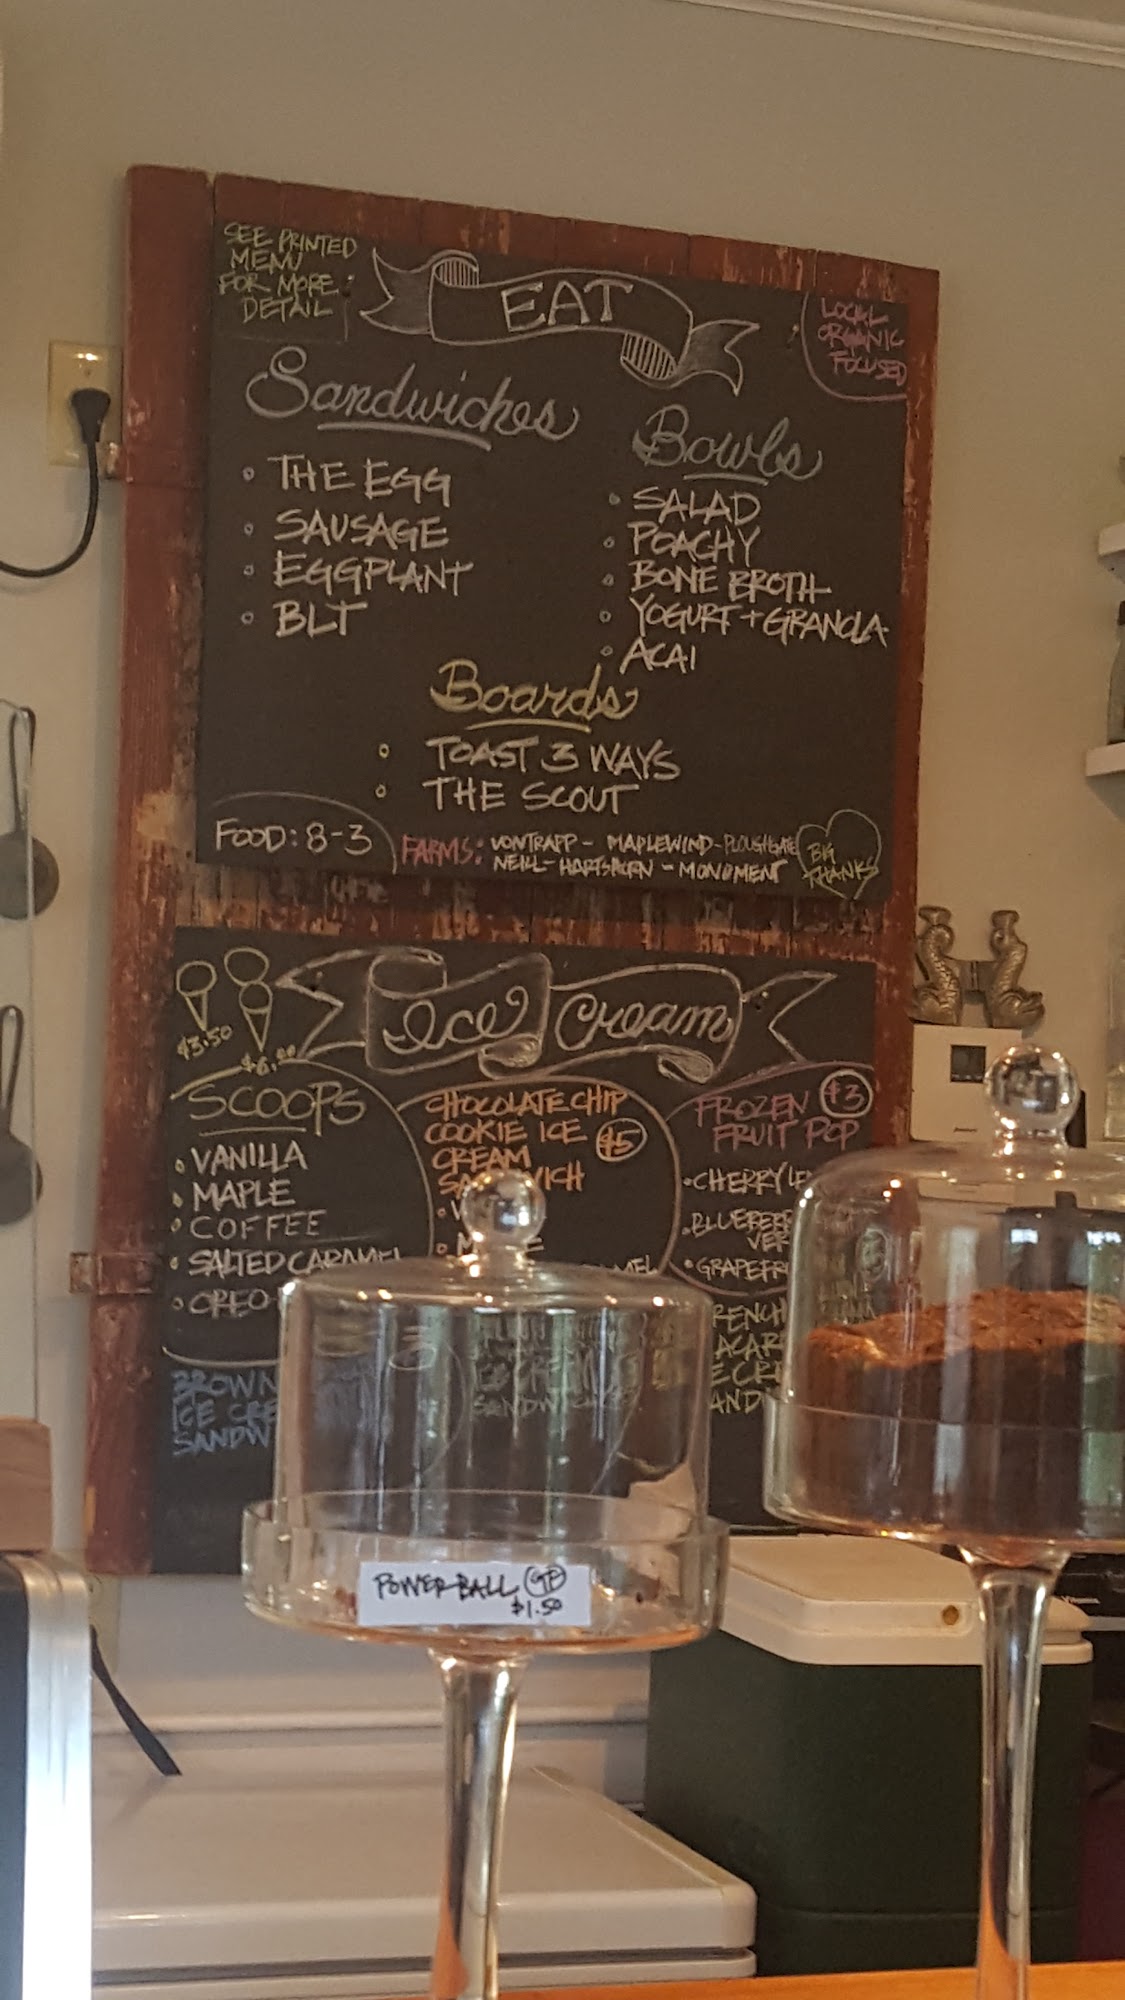 SEE PRINTED
MENU
FOR MORE
DETAIL
EAT
LOCAL
ORGANIC
FOCUSED
Sandwiches
• THE EGG
• SAUSAGE
• EGGPLANT
• BLT
Bowls
• SALAD
• POACHY
• BONE BROTH
• YOGURT + GRANOLA
• ACAI
Boards
• TOAST 3 WAYS
• THE SCOUT
FOOD: 8-3
FARMS: VONTRAPP - MAPLEWIND - PLOUGHGATE
NEILL - - MONUMENT
BIG
THANKS
Ice Cream
$3.50
$6.00
SCOOPS
• VANILLA
• MAPLE
• COFFEE
• SALTED CARAMEL
• OREO
CHOCOLATE CHIP
COOKIE ICE $5
CREAM
FROZEN $3
FRUIT POP
• CHERRY
• GRAPEFR
BROWN
ICE CRE
SANDW
POWER BALL GF
$1.50